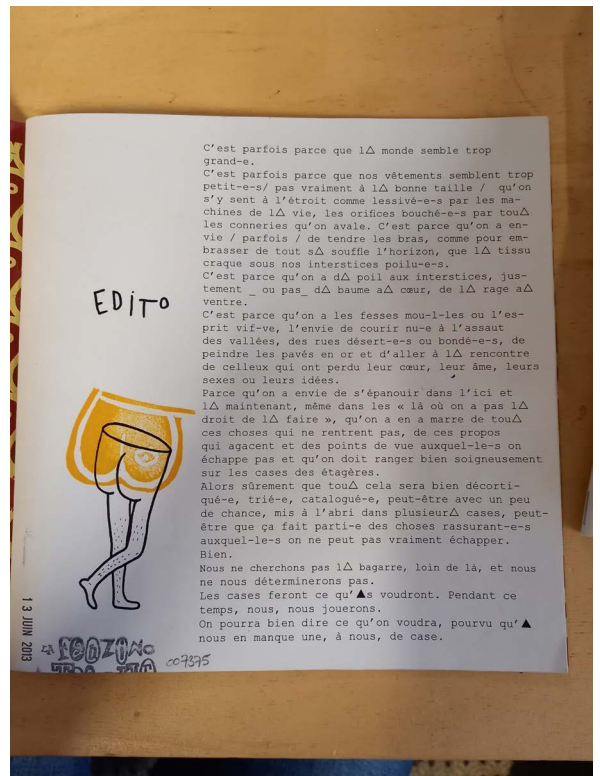 C'est parfois parce que l△ monde semble trop
grand-e.
C'est parfois parce que nos vêtements semblent trop
petit-e-s/ pas vraiment à l△ bonne taille / qu'on
s'y sent à l'étroit comme lessivé-e-s par les ma-
chines de l△ vie, les orifices bouché-e-s par tou△
les conneries qu'on avale. C'est parce qu'on a en-
vie / parfois / de tendre les bras, comme pour em-
brasser de tout s△ souffle l'horizon, que l△ tissu
craque sous nos interstices poilu-e-s.
C'est parce qu'on a d△ poil aux interstices, jus-
tement _ ou pas_ d△ baume a△ cœur, de l△ rage a△
ventre.
C'est parce qu'on a les fesses mou-l-les ou l'es-
prit vif-ve, l'envie de courir nu-e à l'assaut
des vallées, des rues désert-e-s ou bondé-e-s, de
peindre les pavés en or et d'aller à l△ rencontre
de celleux qui ont perdu leur cœur, leur âme, leurs
sexes ou leurs idées.
Parce qu'on a envie de s'épanouir dans l'ici et
l△ maintenant, même dans les « là où on a pas l△
droit de l△ faire », qu'on a en a marre de tou△
ces choses qui ne rentrent pas, de ces propos
qui agacent et des points de vue auxquel-le-s on
échappe pas et qu'on doit ranger bien soigneusement
sur les cases des étagères.
Alors sûrement que tou△ cela sera bien décorti-
qué-e, trié-e, catalogué-e, peut-être avec un peu
de chance, mis à l'abri dans plusieur△ cases, peut-
être que ça fait parti-e des choses rassurant-e-s
auxquel-le-s on ne peut pas vraiment échapper.
Bien.
Nous ne cherchons pas l△ bagarre, loin de là, et nous
ne nous déterminerons pas.
Les cases feront ce qu'▲s voudront. Pendant ce
temps, nous, nous jouerons.
On pourra bien dire ce qu'on voudra, pourvu qu'▲
nous en manque une, à nous, de case.
EDITO
13 JUIN 2013
007375